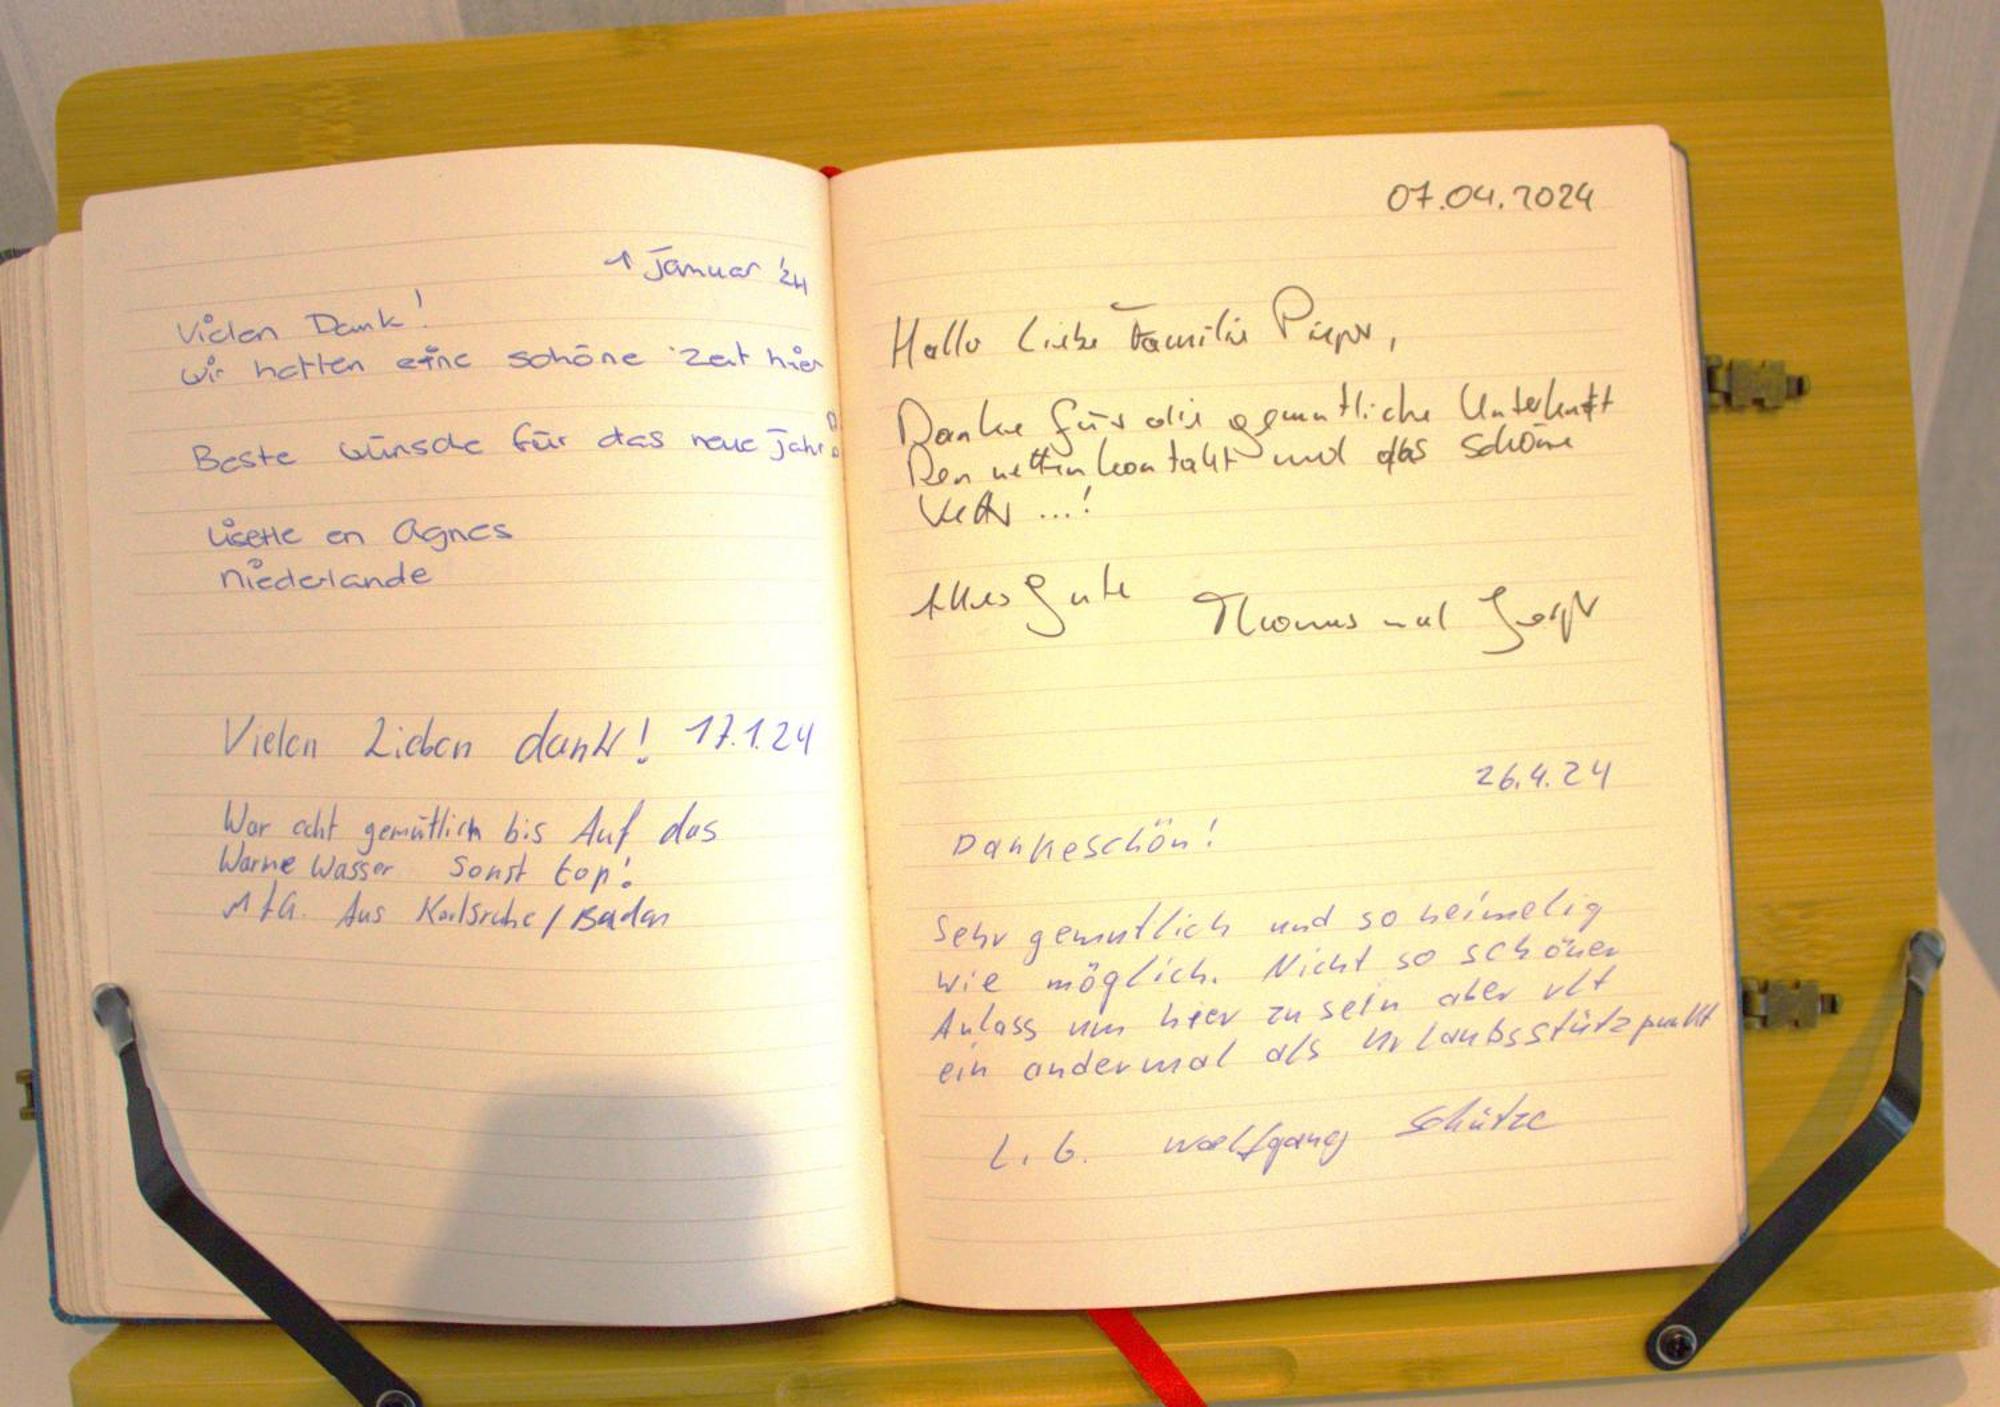 1 Januar '24
Vielen Dank!
wir hatten eine schöne Zeit hier
Beste wünsche für das neue Jahr!
Lisette en Agnes
Niederlande
Vielen Lieben dank! 17.1.24
War echt gemütlich bis Auf das
Warme Wasser Sonst top!
MfG. Aus Karlsruhe/Baden
07.04.2024
Hallo Liebe Familie Pieper,
Danke für die gemütliche Unterkunft
Den netten Kontakt und das schöne
Wetter ...!
Alles Gute Thomas und
26.4.24
Dankeschön!
Sehr gemütlich und so heimelig
wie möglich. Nicht so schöner
Anlass um hier zu sein aber vlt
ein andermal als Urlaubsstützpunkt
L. G. Wolfgang Schütze